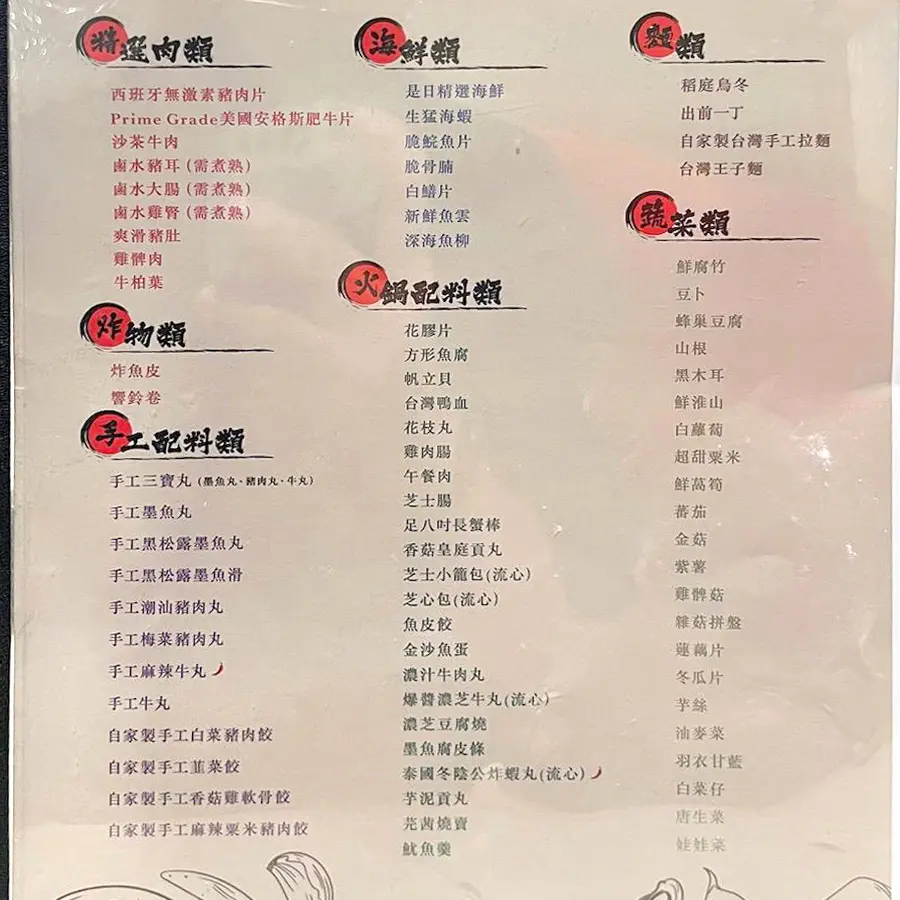 精選肉類
西班牙無激素豬肉片
Prime Grade美國安格斯肥牛片
沙茶牛肉
鹵水豬耳 (需煮熟)
鹵水大腸 (需煮熟)
鹵水雞腎 (需煮熟)
爽滑豬肚
雞髀肉
牛柏葉
炸物類
炸魚皮
響鈴卷
手工配料類
手工三寶丸 (墨魚丸、豬肉丸、牛丸)
手工墨魚丸
手工黑松露墨魚丸
手工黑松露墨魚滑
手工潮汕豬肉丸
手工梅菜豬肉丸
手工麻辣牛丸
手工牛丸
自家製手工白菜豬肉餃
自家製手工韮菜餃
自家製手工香菇雞軟骨餃
自家製手工麻辣粟米豬肉餃
海鮮類
是日精選海鮮
生猛海蝦
脆鯇魚片
脆骨腩
白鱔片
新鮮魚雲
深海魚柳
火鍋配料類
花膠片
方形魚腐
帆立貝
台灣鴨血
花枝丸
雞肉腸
午餐肉
芝士腸
足八吋長蟹棒
香菇皇庭貢丸
芝士小籠包(流心)
芝心包(流心)
魚皮餃
金沙魚蛋
濃汁牛肉丸
爆醬濃芝牛丸(流心)
濃芝豆腐燒
墨魚腐皮條
泰國冬陰公炸蝦丸(流心)
芋泥貢丸
芫茜燒賣
魷魚羹
麵類
稻庭烏冬
出前一丁
自家製台灣手工拉麵
台灣王子麵
蔬菜類
鮮腐竹
豆卜
蜂巢豆腐
山根
黑木耳
鮮淮山
白蘿蔔
超甜粟米
鮮萵筍
蕃茄
金菇
紫薯
雞髀菇
雜菇拼盤
蓮藕片
冬瓜片
芋絲
油麥菜
羽衣甘藍
白菜仔
唐生菜
娃娃菜